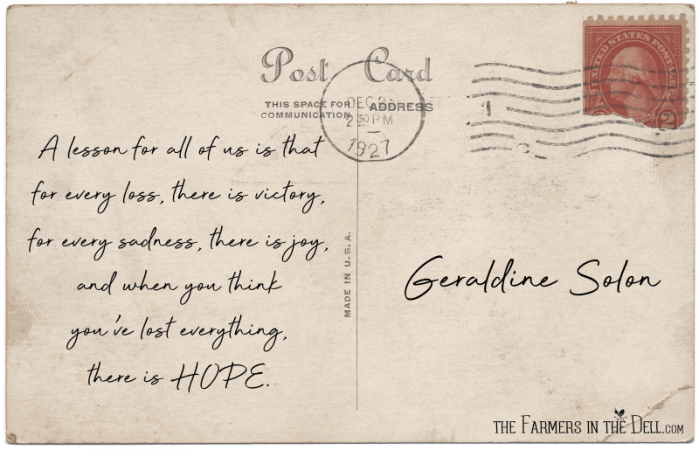 Post Card
THIS SPACE FOR
COMMUNICATION
ADDRESS
DEC
2 30 PM
1927
UNITED STATES POSTAGE
2
A lesson for all of us is that
for every loss, there is victory,
for every sadness, there is joy,
and when you think
you've lost everything,
there is HOPE.
MADE IN U.S.A.
Geraldine Solon
THE FARMERS IN THE DELL.COM